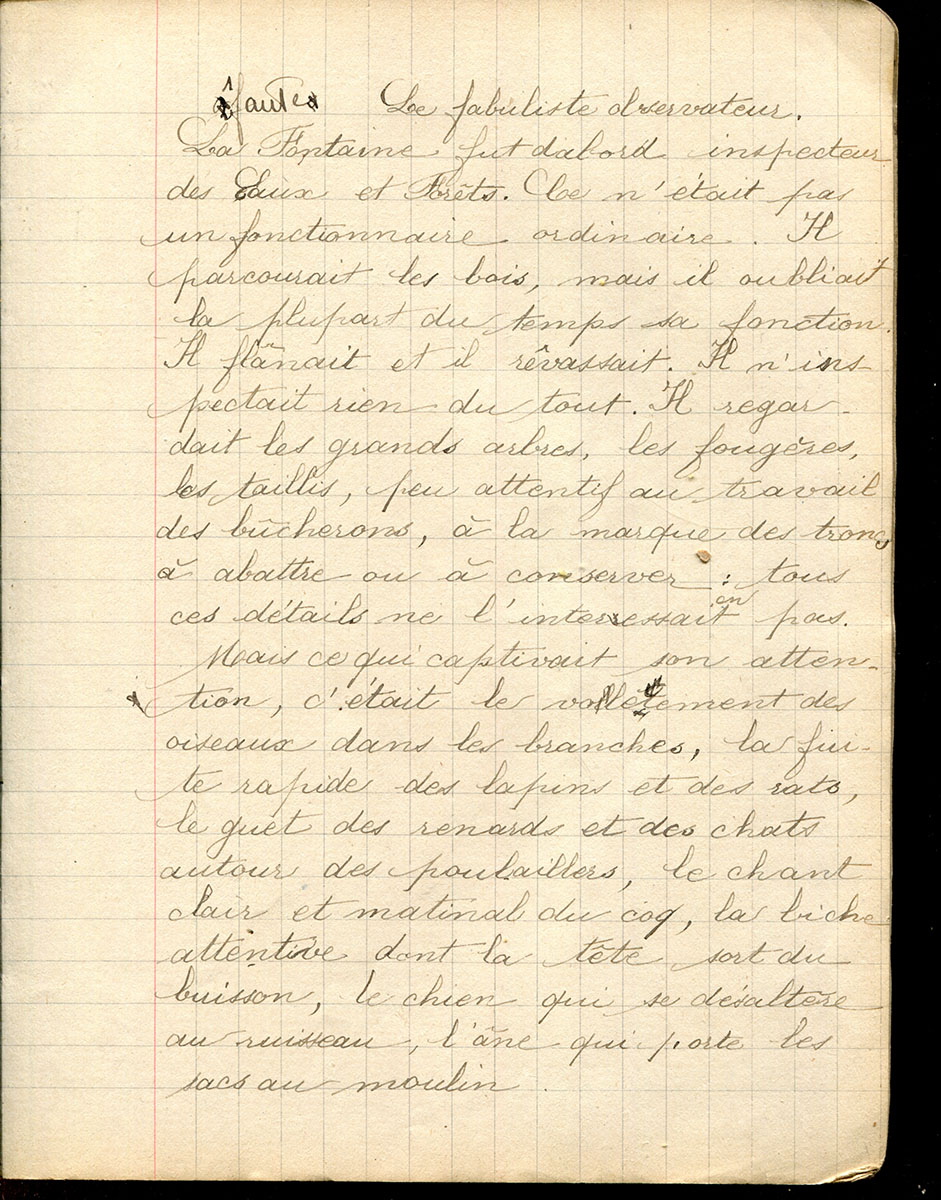 1 faute Le fabuliste observateur.
La Fontaine fut dabord inspecteur
des Eaux et Forêts. Ce n'était pas
un fonctionnaire ordinaire. Il
parcourait les bois, mais il oubliait
la plupart du temps sa fonction.
Il flânait et il rêvassait. Il n'ins-
pectait rien du tout. Il regar-
dait les grands arbres, les fougères,
les taillis, peu attentif au travail
des bûcherons, à la marque des troncs
à abattre ou à conserver : tous
ces détails ne l'interessaient pas.
Mais ce qui captivait son atten-
tion, c'était le volètement des
oiseaux dans les branches, la fui-
te rapide des lapins et des rats,
le guet des renards et des chats
autour des poulaillers, le chant
clair et matinal du coq, la biche
attentive dont la tête sort du
buisson, le chien qui se désaltère
au ruisseau, l'âne qui porte les
sacs au moulin.